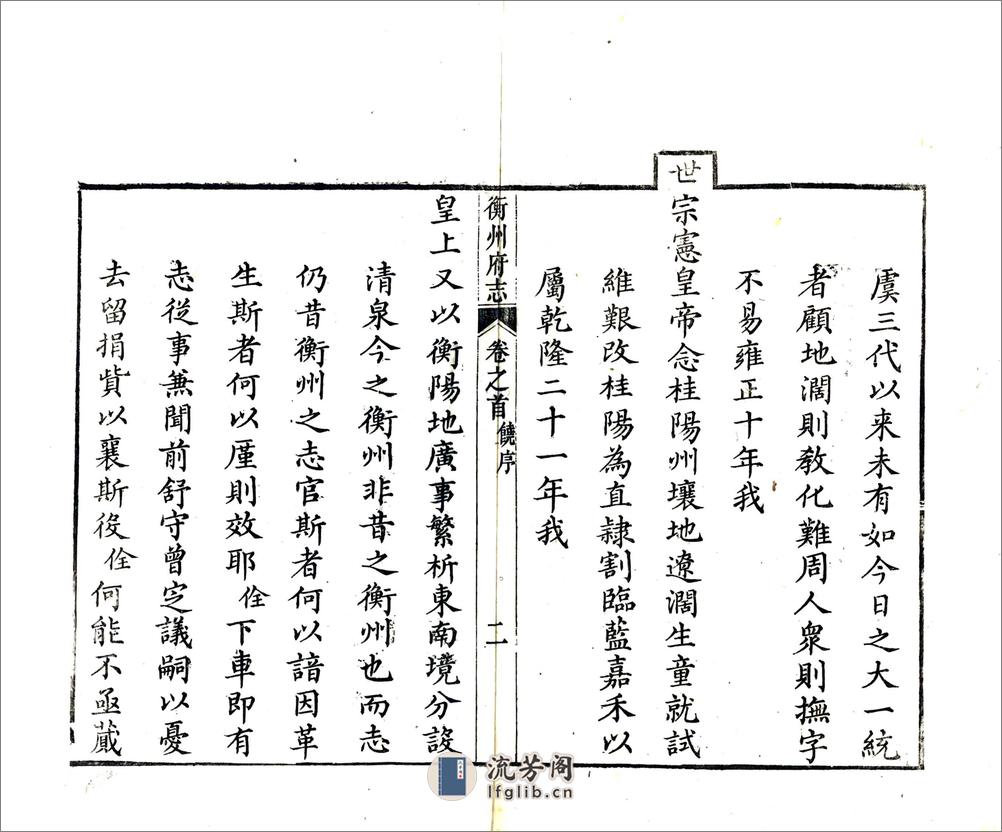 虞三代以来未有如今日之大一統
者顧地濶則教化難周人衆則撫字
不易雍正十年我
世宗憲皇帝念桂陽州壤地遼濶生童就試
維艱改桂陽為直隷割臨藍嘉禾以
屬乾隆二十一年我
衡州府志 卷之首 饒序 二
皇上又以衡陽地廣事繁析東南境分設
清泉今之衡州非昔之衡州也而志
仍昔衡州之志官斯者何以諳因革
生斯者何以厪則效耶佺下車即有
志從事兼聞前舒守曾定議嗣以憂
去留捐貲以襄斯役佺何能不亟蕆
流芳阁
lfglib.cn